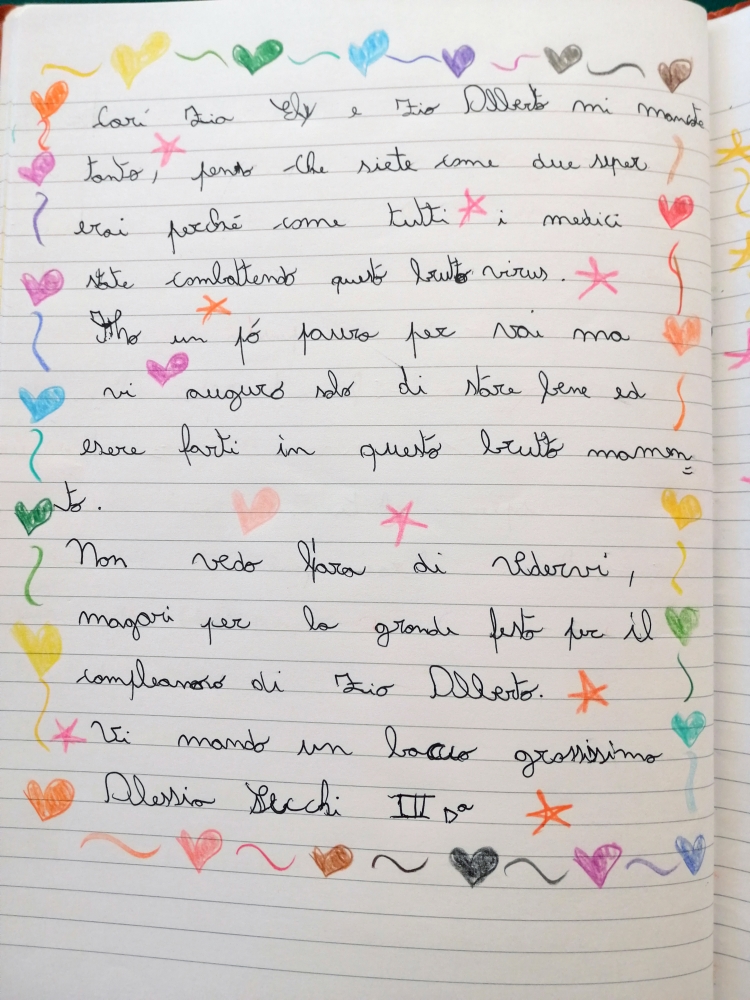 Cari Zia Ely e Zio Alberto mi mancate
tanto, penso che siete come due super
eroi perché come tutti i medici
state combattendo questo brutto virus.
Ho un pó paura per voi ma
vi auguro solo di stare bene ed
esere forti in questo brutto momen=
to.
Non vedo l'ora di vedervi,
magari per la grande festa per il
compleanno di Zio Alberto.
Vi mando un bacio grossissimo
Alessia Secchi III Dª